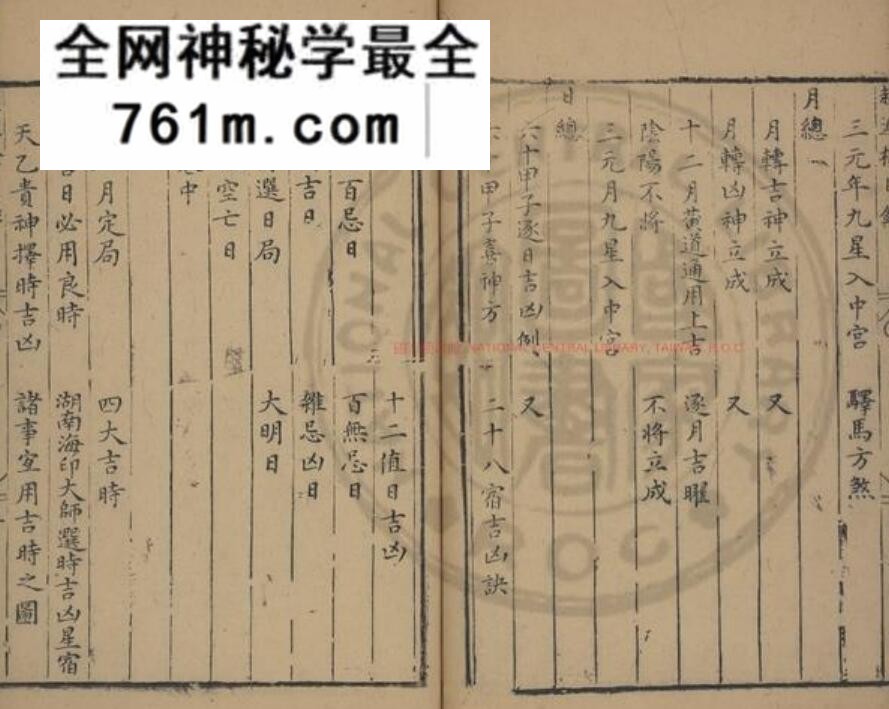 全网神秘学最全
761m.com
三元年九星入中宮 驛馬方煞
月總
月轉吉神立成 又
月轉凶神立成 又
十二月黃道通用上吉 逐月吉曜
陰陽不將 不將立成
三元月九星入中宮
日總
六十甲子逐日吉凶例 又
六十甲子喜神方 二十八宿吉凶訣
十二值日吉凶
百忌日 百無忌日
吉日 雜忌凶日
選日局 大明日
空亡日
中
月定局 四大吉時
日必用良時 湖南海印大師選時吉凶星宿
天乙貴神擇時吉凶 諸事宜用吉時之圖
NATIONAL CENTRAL LIBRARY, TAIWAN, R.O.C.